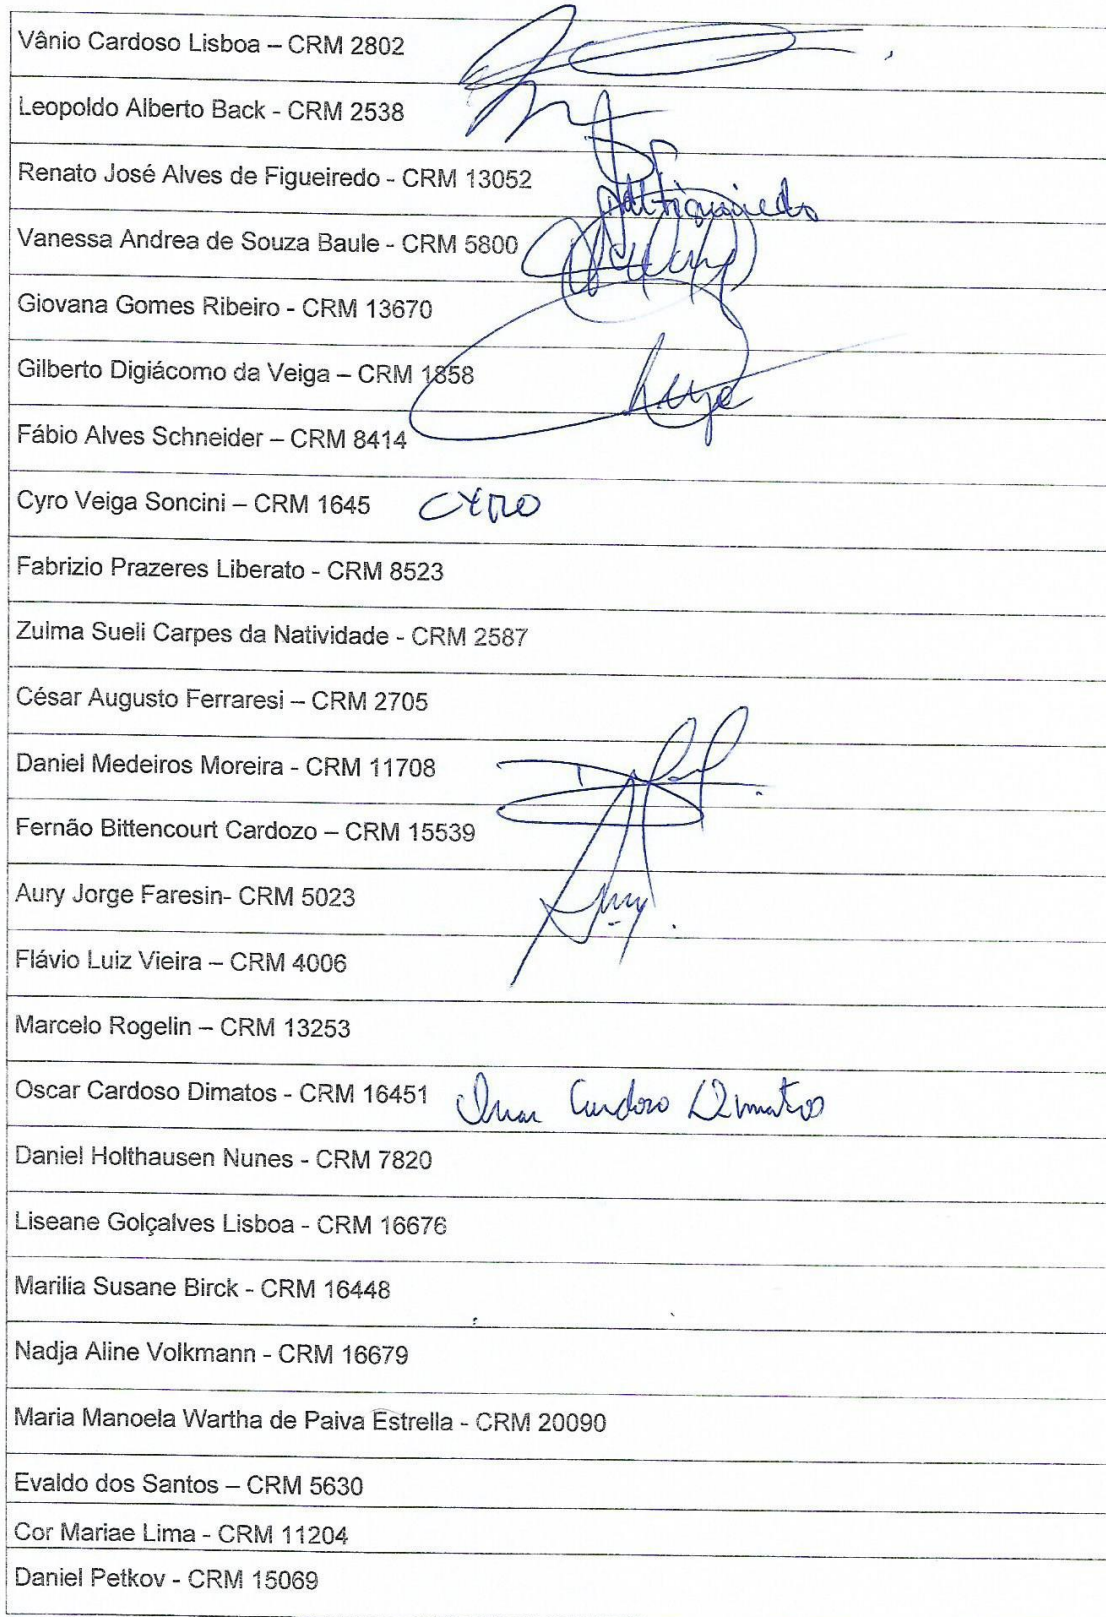 Vânio Cardoso Lisboa – CRM 2802
Leopoldo Alberto Back - CRM 2538
Renato José Alves de Figueiredo - CRM 13052
Vanessa Andrea de Souza Baule - CRM 5800
Giovana Gomes Ribeiro - CRM 13670
Gilberto Digiácomo da Veiga – CRM 1858
Fábio Alves Schneider – CRM 8414
Cyro Veiga Soncini – CRM 1645 CYRO
Fabrizio Prazeres Liberato - CRM 8523
Zulma Sueli Carpes da Natividade - CRM 2587
César Augusto Ferraresi – CRM 2705
Daniel Medeiros Moreira - CRM 11708
Fernão Bittencourt Cardozo – CRM 15539
Aury Jorge Faresin- CRM 5023
Flávio Luiz Vieira – CRM 4006
Marcelo Rogelin – CRM 13253
Oscar Cardoso Dimatos - CRM 16451 Oscar Cardoso Dimatos
Daniel Holthausen Nunes - CRM 7820
Liseane Golçalves Lisboa - CRM 16676
Marilia Susane Birck - CRM 16448
Nadja Aline Volkmann - CRM 16679
Maria Manoela Wartha de Paiva Estrella - CRM 20090
Evaldo dos Santos – CRM 5630
Cor Mariae Lima - CRM 11204
Daniel Petkov - CRM 15069